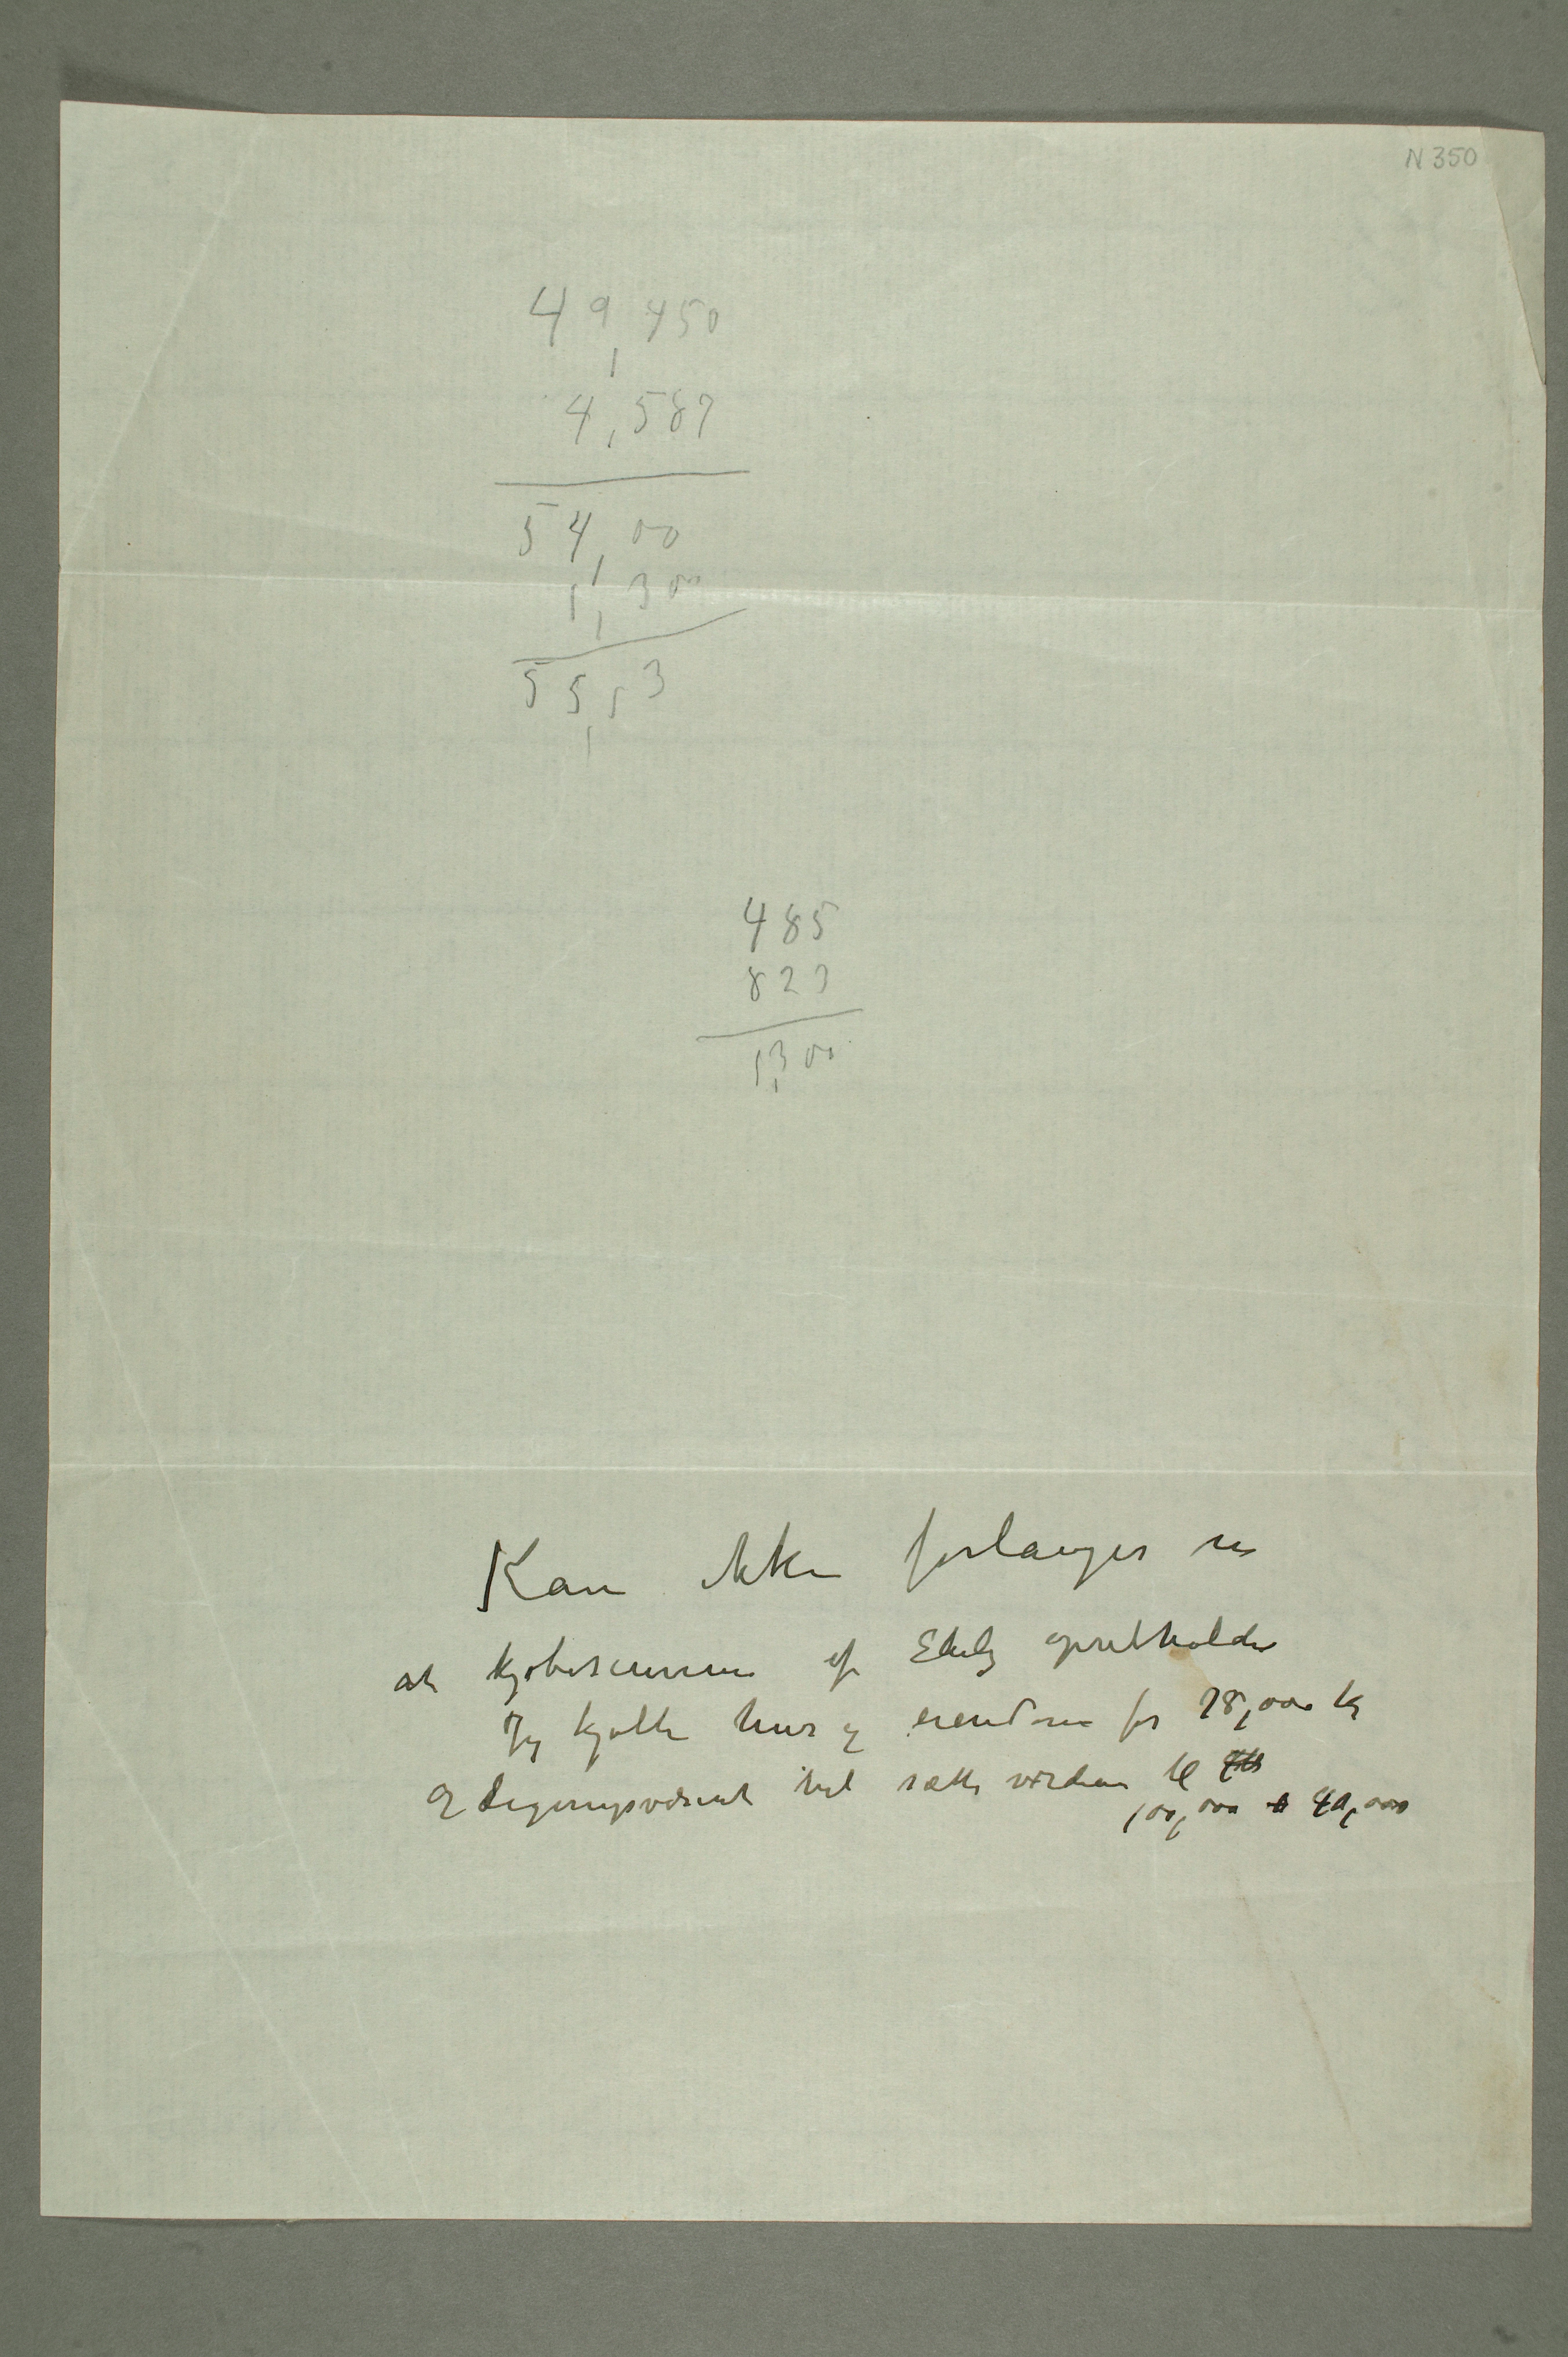 N 350
49,450
4,587
54,00
1,300
55,3
485
823
1,300
Kan ikke forlanges
at kjøbesummen af Ekely opretholdes
Jeg kjøbte hus og eiendom for 78,000 kr
og Ligningsvæsenet vil sætte værdien til
100,000 90,000